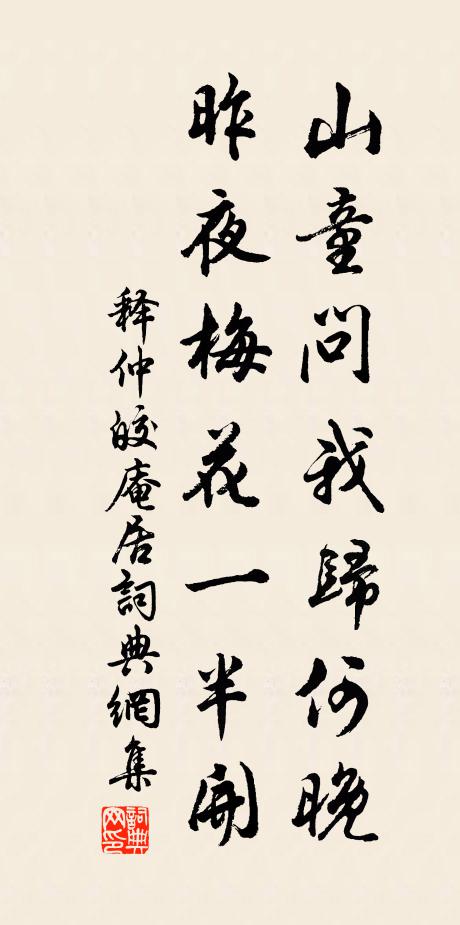 山童問我歸何晚
昨夜梅花一半開
释仲皎庵居詞典網集
詞典网印